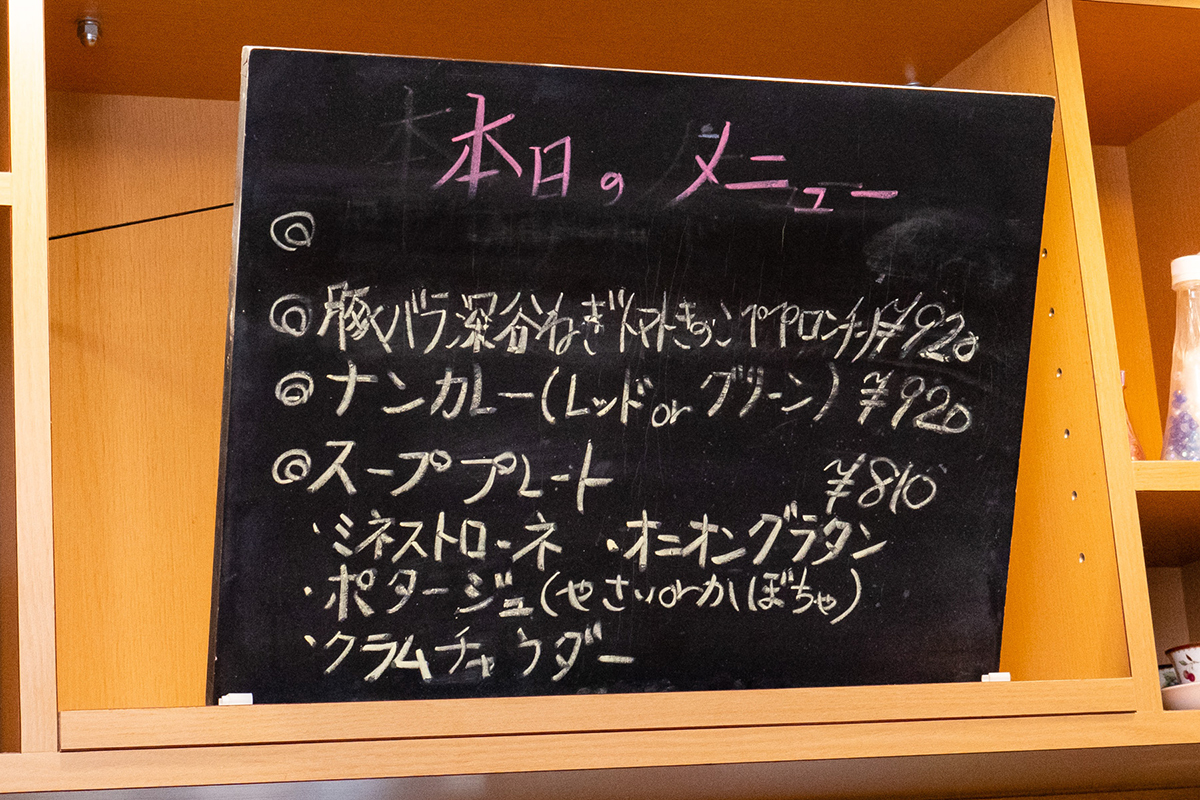 本日のメニュー
◎
◎豚バラ深谷ねぎトマトきのこペペロンチーノ ¥920
◎ナンカレー(レッドorグリーン) ¥920
◎スーププレート ¥810
・ミネストローネ ・オニオングラタン
・ポタージュ(やさいorかぼちゃ)
・クラムチャウダー